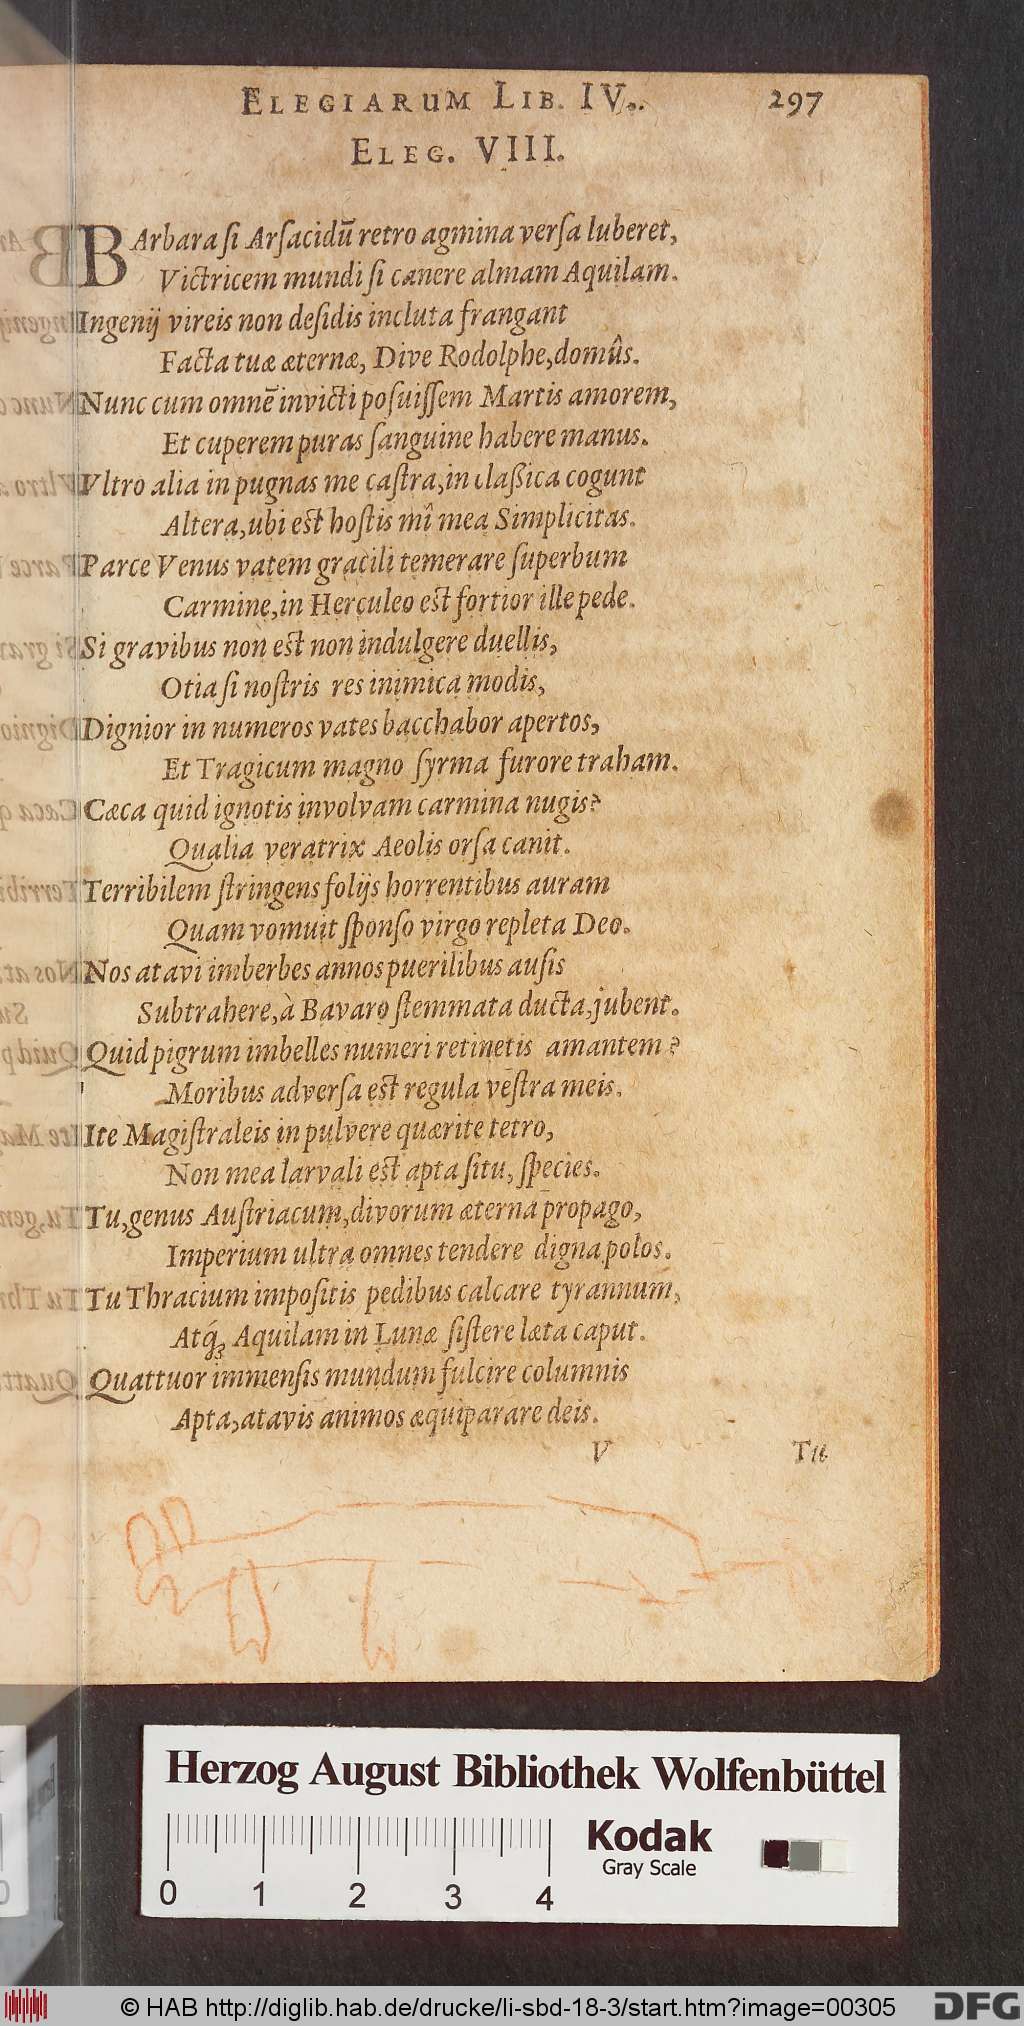 ELEGIARUM LIB. IV. 297
ELEG. VIII.
BArbara si Arsacidū retro agmina versa luberet,
Victricem mundi si canere almam Aquilam.
Ingenij vireis non desidis incluta frangant
Facta tuæ æternæ, Dive Rodolphe, domûs.
Nunc cum omnē invicti posuissem Martis amorem,
Et cuperem puras sanguine habere manus.
Vltro alia in pugnas me castra, in classica cogunt
Altera, ubi est hostis mî mea Simplicitas.
Parce Venus vatem gracili temerare superbum
Carmine, in Herculeo est fortior ille pede.
Si gravibus non est non indulgere duellis,
Otia si nostris res inimica modis,
Dignior in numeros vates bacchabor apertos,
Et Tragicum magno syrma furore traham.
Cæca quid ignotis involvam carmina nugis?
Qualia veratrix Aeolis orsa canit.
Terribilem stringens folijs horrentibus auram
Quam vomuit sponso virgo repleta Deo.
Nos atavi imberbes annos puerilibus ausis
Subtrahere, à Bavaro stemmata ducta, jubent.
Quid pigrum imbelles numeri retinetis amantem?
Moribus adversa est regula vestra meis.
Ite Magistraleis in pulvere quærite tetro,
Non mea larvali est apta situ, species.
Tu, genus Austriacum, divorum æterna propago,
Imperium ultra omnes tendere digna polos.
Tu Thracium impositis pedibus calcare tyrannum,
Atq́; Aquilam in Lunæ sistere læta caput.
Quattuor immensis mundum fulcire columnis
Apta, atavis animos æquiparare deis.
V Tu
Herzog August Bibliothek Wolfenbüttel
Kodak
Gray Scale
0 1 2 3 4
© HAB http://diglib.hab.de/drucke/li-sbd-18-3/start.htm?image=00305 DFG